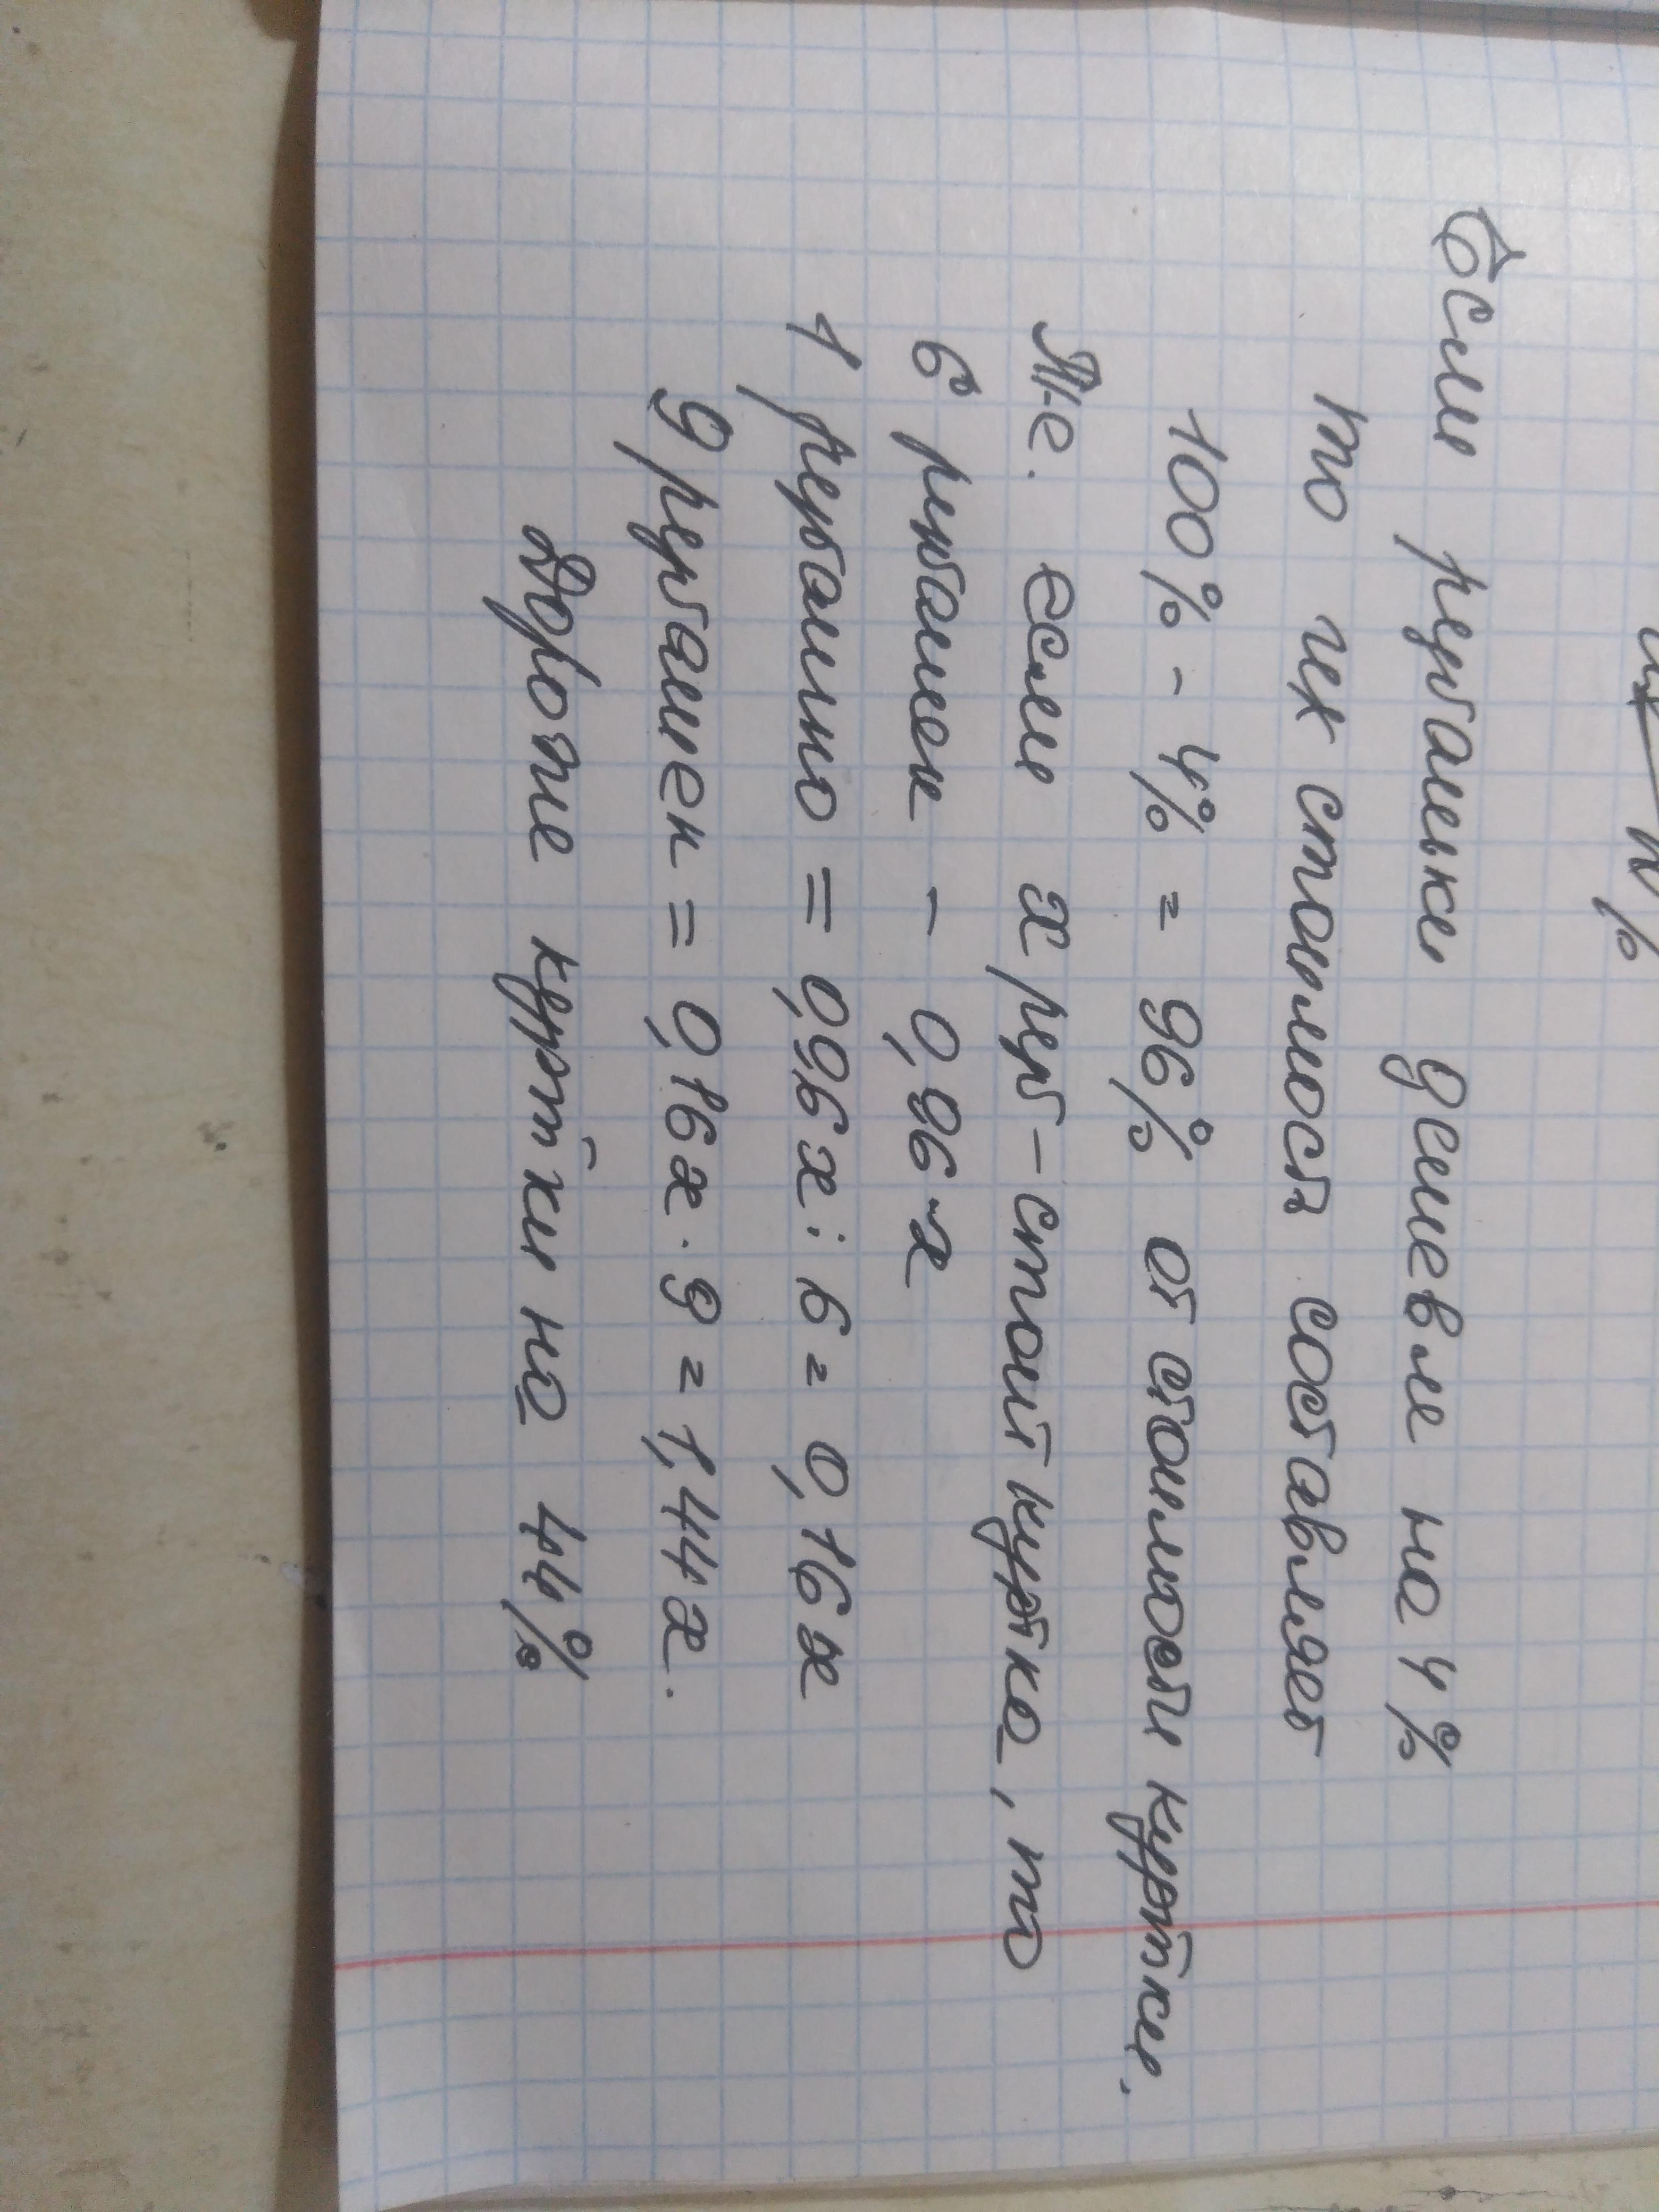 Если рубашки дешевле на 4%
то их стоимость составляет
100% - 4% = 96% от стоимости куртки.
Т.е. если х руб - стоит куртка, то
6 рубашек - 0,96 х
1 рубашка = 0,96 х : 6 = 0,16 х
9 рубашек = 0,16 х · 9 = 1,44 х.
Дороже куртки на 44%